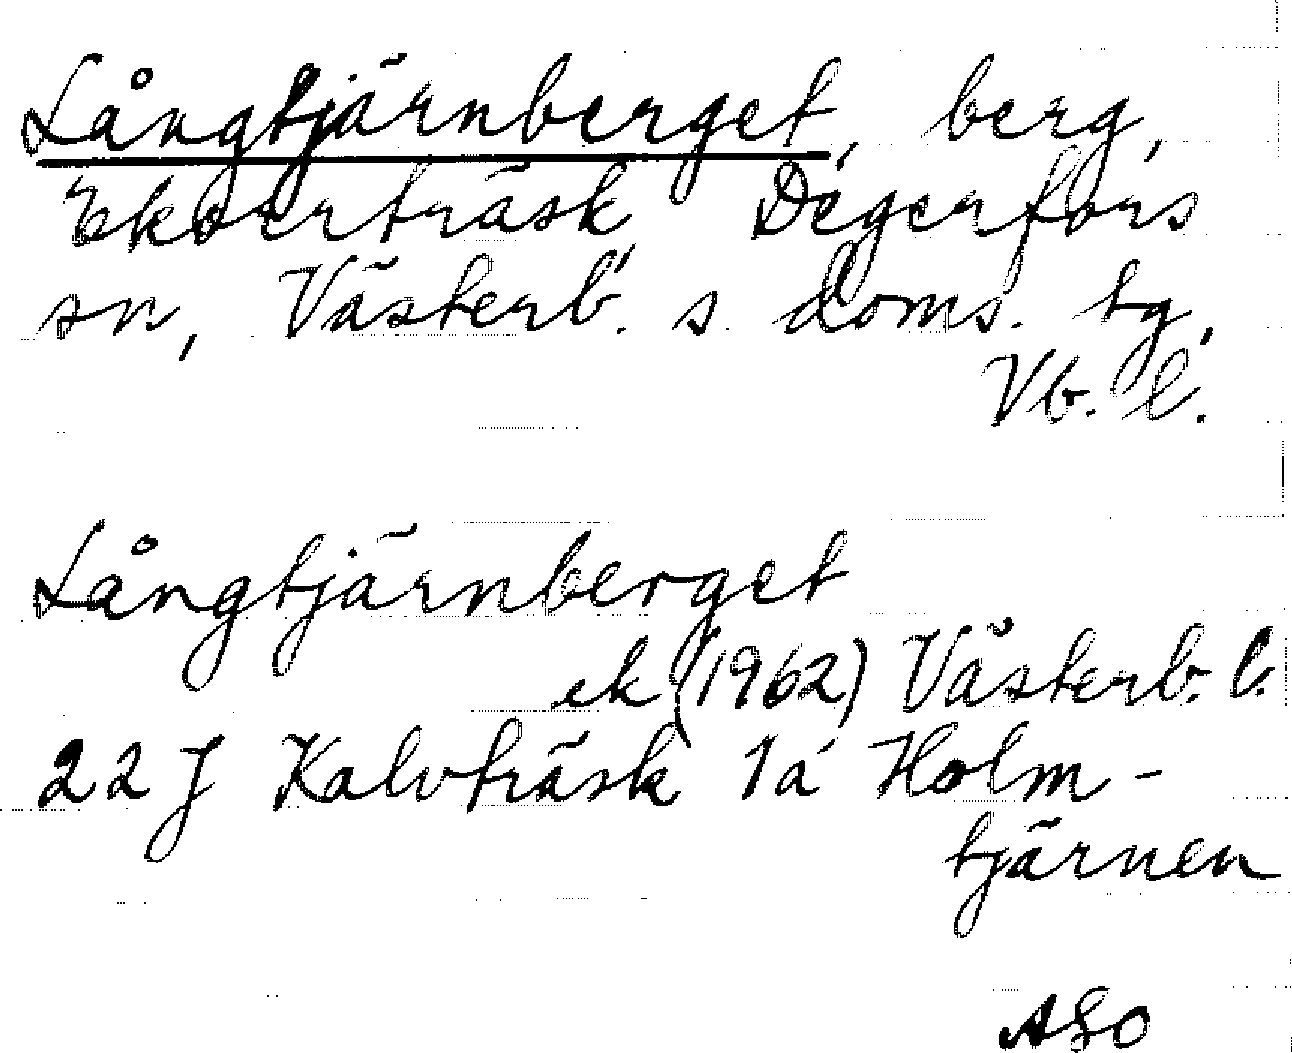 Långtjärnberget, berg,
Ekorrträsk, Degerfors
sn, Västerb. s doms. tg,
Vb. l.
Långtjärnberget
ek (1962) Västerb. l.
22 J Kalvträsk 1a Holm-
tjärnen
ASO